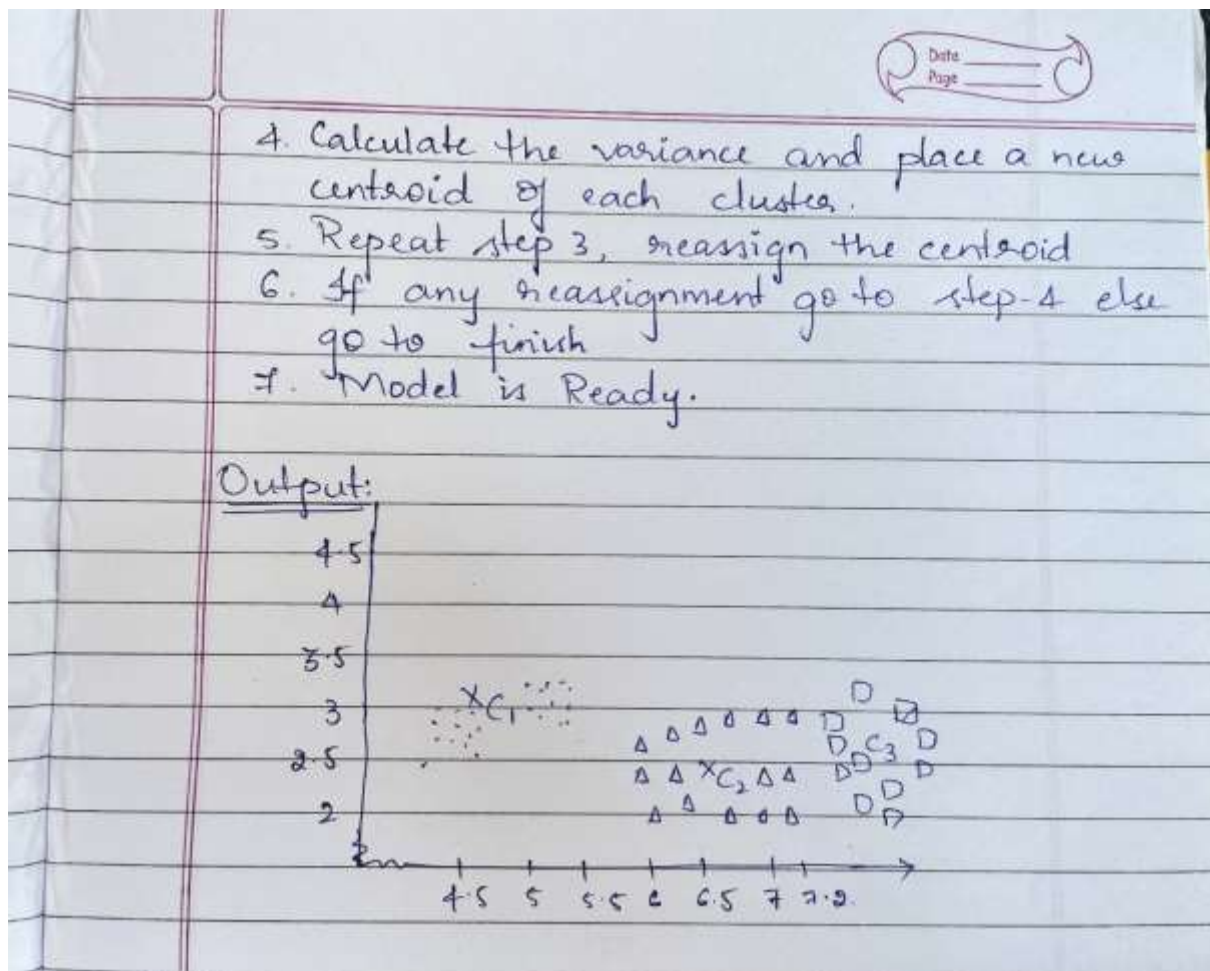 Date
Page
4. Calculate the variance and place a new
centroid of each cluster.
5. Repeat step 3, reassign the centroid
6. If any reassignment go to step-4 else
go to finish
7. Model is Ready.
Output:
4.5
4
3.5
3
2.5
2
C1
C2
C3
4.5 5 5.5 6 6.5 7 7.2